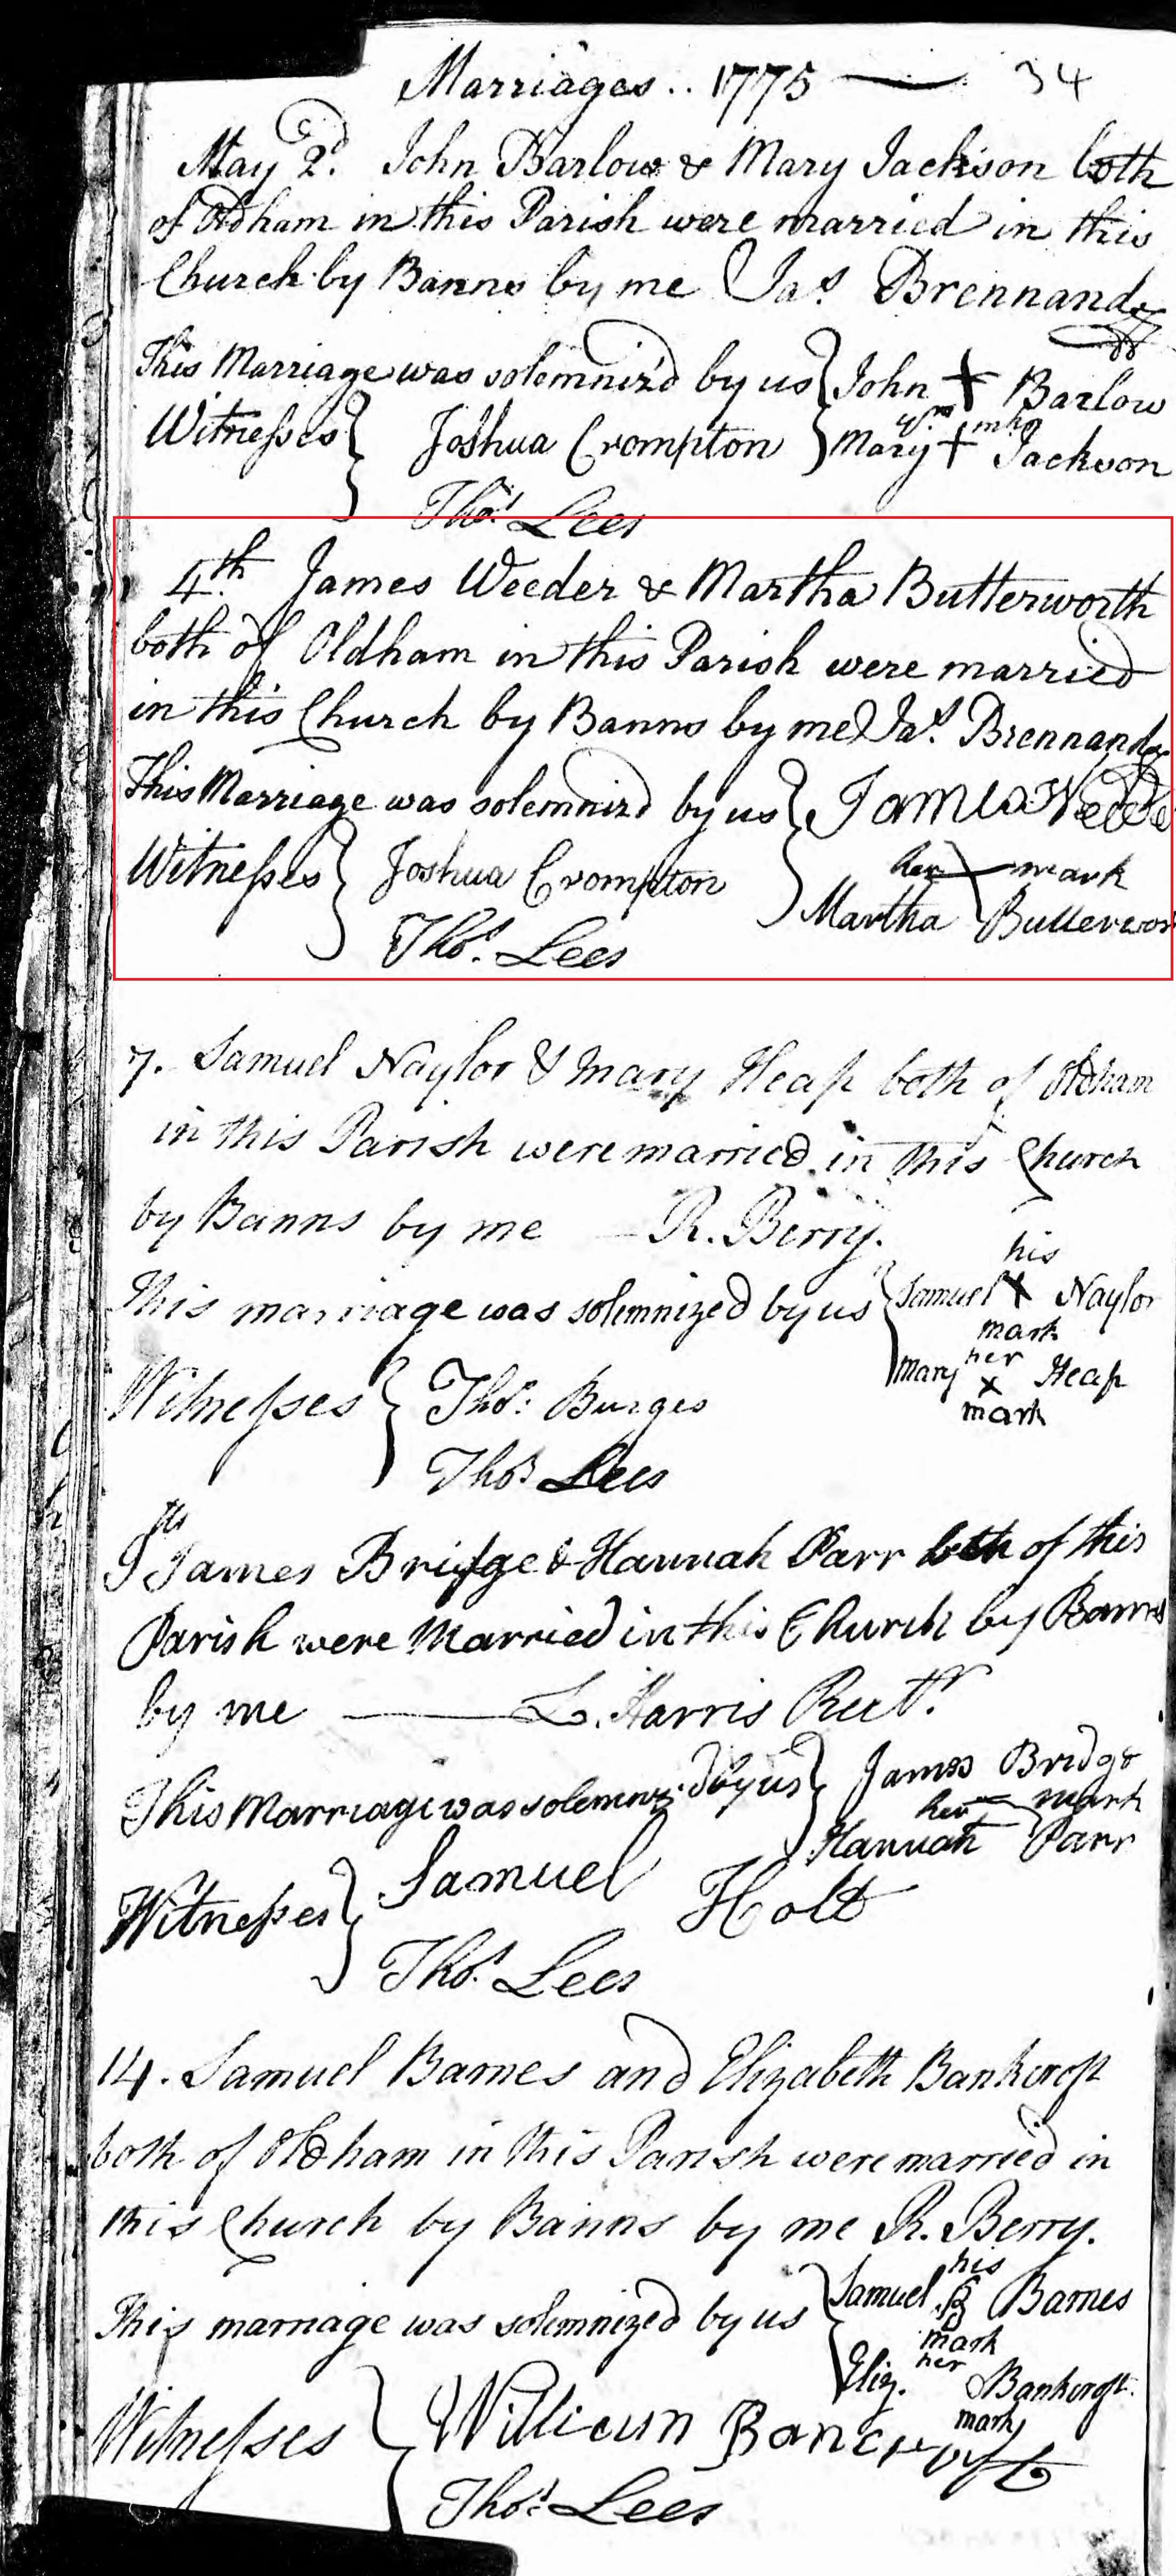 Marriages .. 1775 — 34
May 2d. John Barlow & Mary Jackson both
of Oldham in this Parish were married in this
Church by Banns by me Jas. Brennand
This Marriage was solemniz'd by us } John + Barlow
mks
Witnesses } Joshua Crompton } Mary + Jackson
Thos. Lees
4th. James Weeder & Martha Butterworth
both of Oldham in this Parish were married
in this Church by Banns by me Jas. Brennand
This Marriage was solemnizd by us } James
her mark
Witnesses } Joshua Crompton } Martha Butterwor
Thos. Lees
7. Samuel Naylor & Mary Heap both of Oldham
in this Parish were married in this Church
by Banns by me — R. Berry.
his
This marriage was solemnized by us { Samuel X Naylor
mark
her
Mary x Heap
mark
Witnesses { Tho: Burges
Thos Lees
9th James Bridge & Hannah Parr both of this
Parish were Married in this Church by Banns
by me — L. Harris Rectr.
This Marriage was solemniz'd by us } James Bridge
her mark
Hannah Parr
Witnesses } Samuel Holt
Thos. Lees
14. Samuel Barnes and Elizabeth Bankcroft
both of Oldham in this Parish were married in
this Church by Banns by me R. Berry.
his
This marriage was solemnized by us { Samuel Barnes
mark
her
Eliz. Bankcroft.
mark
Witnesses { William Bancroft
Thos. Lees